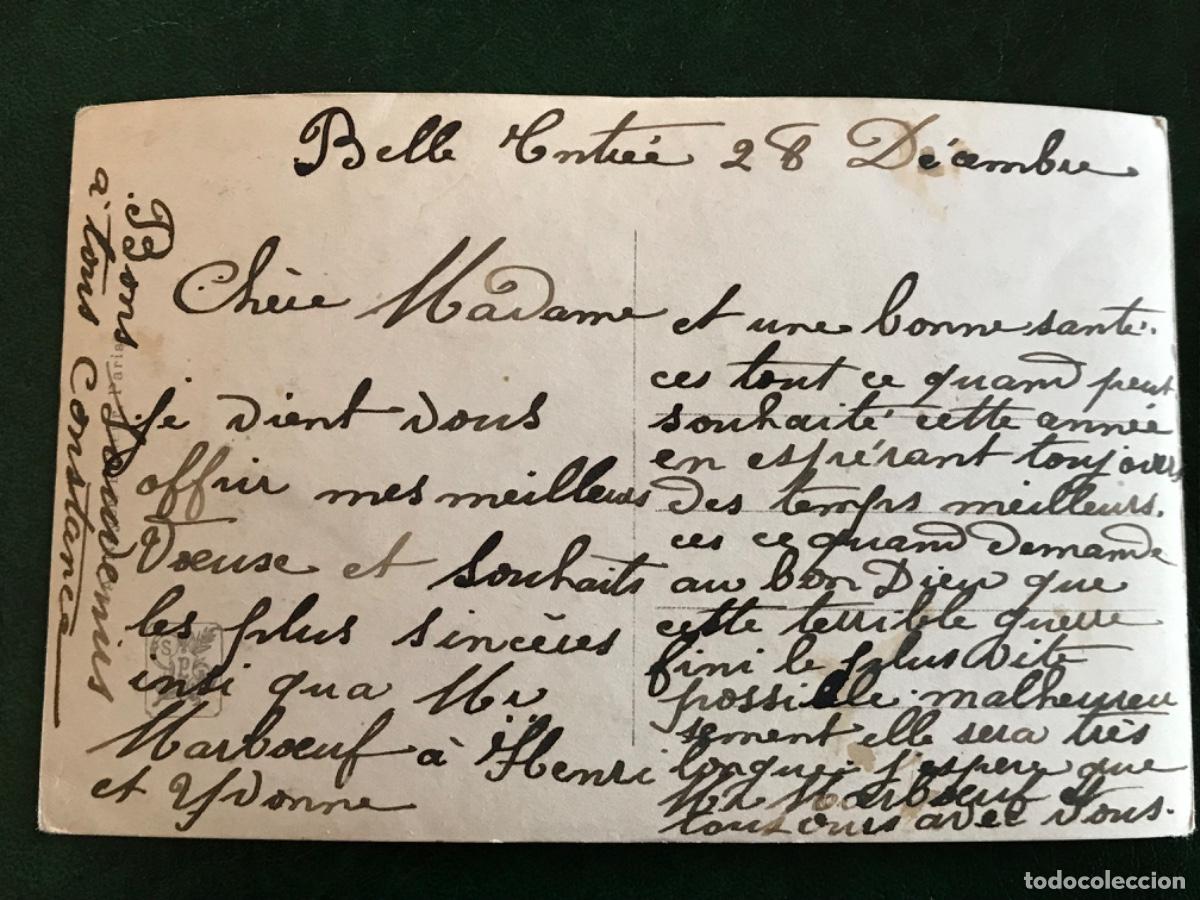 Belle Entrée 28 Décembre
Chère Madame
je vient vous
offrir mes meilleurs
Voeuse et souhaits
les plus sincères
insi qua Mr
Marbœuf à Henri
et Yvonne
et une bonne santé.
ces tout ce quand peut
souhaité cette année
en espérant toujours
des temps meilleurs.
ces ce quand demande
au bon Dieu que
cette terrible guerre
fini le plus vite
possible malheureu
sement elle sera très
longue j'espere que
Mr Marbœuf et
toujours avec vous.
Bons Souvenirs
a tous Constance
Paris
S P
todocoleccion